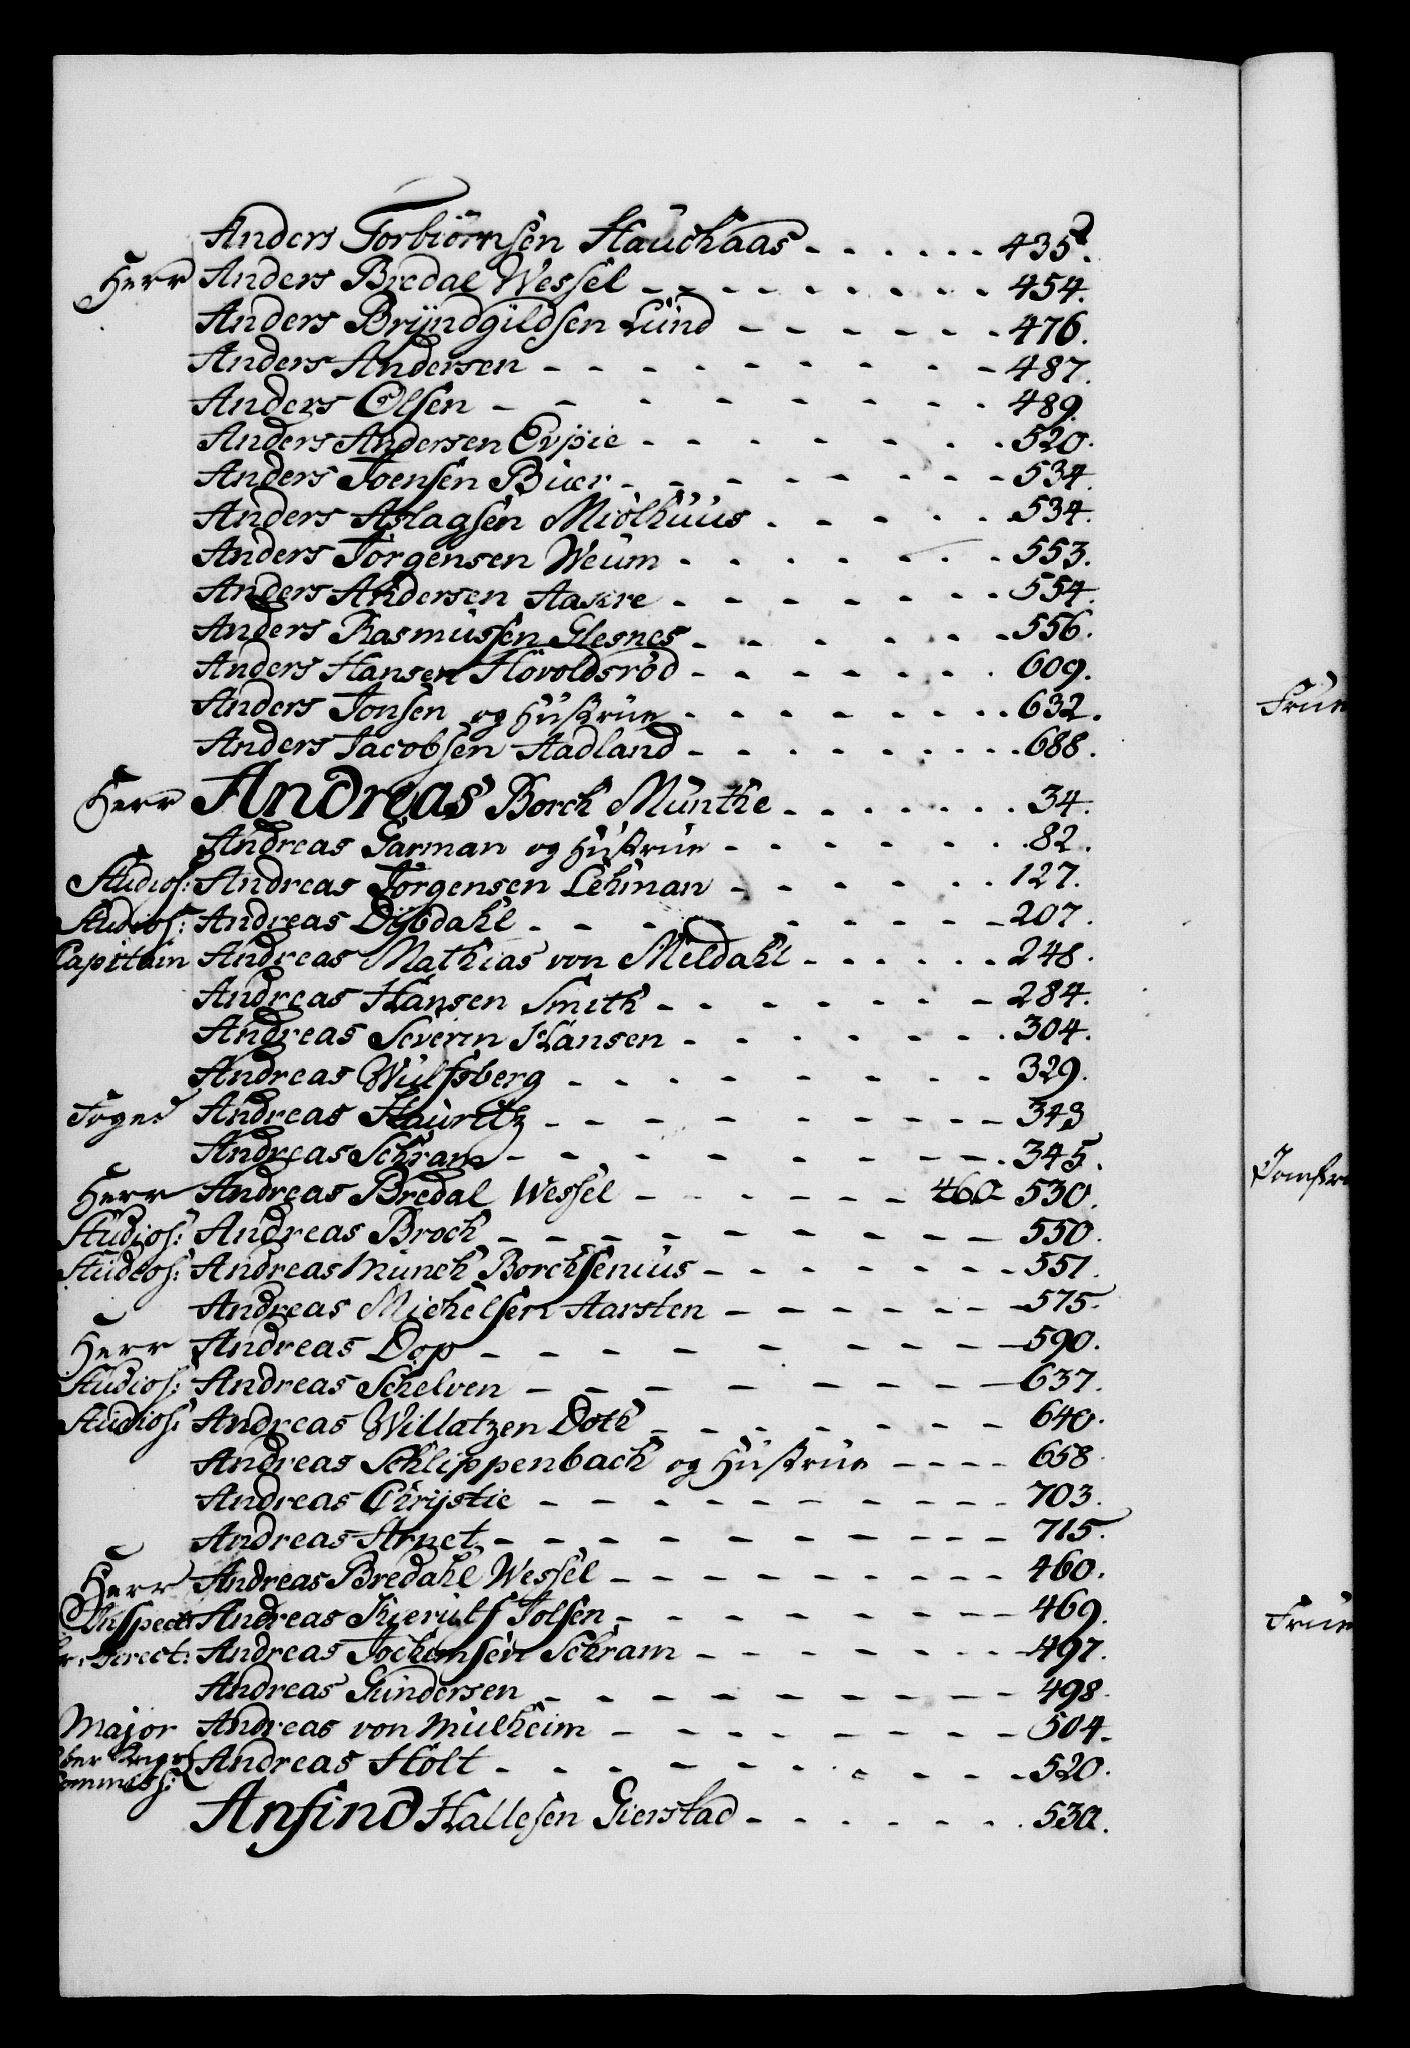 Anders Torbiörnsen Hauchaas - - - - - - 435.
Herr Anders Bredal Wessel - - - - - - - - - 454.
Anders Bryndgildsen Lund - - - - - - 476.
Anders Andersen - - - - - - - - - 487.
Anders Olsen - - - - - - - - - 489.
Anders Andersen Evjie - - - - - - - - 520.
Anders Joensen Buer - - - - - - - - 534.
Anders Aslagsen Miölhuus - - - - - 534.
Anders Jörgensen Weum - - - - - - - 553.
Anders Andersen Aakre - - - - - - - 554.
Anders Rasmussen Glesnes - - - - - - - 556.
Anders Hansen Horoldsröd - - - - - - - 609.
Anders Jonsen og Hustrue - - - - - - - 632.
Anders Jacobsen Aadland - - - - - - - - 688.
Herr Andreas Borch Munthe - - - - - - - 34.
Andreas Garman og Hustrue - - - - - - 82.
Studios: Andreas Jörgensen Lehman - - - - - - 127.
Studios: Andreas Dybdahl - - - - - - - - - 207.
Capitain Andreas Mathias von Meldahl - - - - - - 248.
Andreas Hansen Smith - - - - - - - 284.
Andreas Severin Hansen - - - - - - - 304.
Andreas Wulfsberg - - - - - - - - 329.
Foged Andreas Hauritz - - - - - - - - - 343
Andreas Schram - - - - - - - - - 345.
Herr Andreas Bredal Wessel - - - - - - 460 530.
Studios: Andreas Broch - - - - - - - - - 550.
Studios: Andreas Munch Borchsenius - - - - - - - 551.
Andreas Michelsen Aarsten - - - - - - 575.
Herr Andreas Dop - - - - - - - - - 590.
Studios: Andreas Schelven - - - - - - - - 637.
Studios: Andreas Willatzen Doth - - - - - - - 640.
Andreas Schlippenbach og Hustrue - - - - 658.
Andreas Chrijstie - - - - - - - - - 703.
Andreas Arnet - - - - - - - - - - 715.
Herr Andreas Bredahl Wessel - - - - - - - - - 460.
Inspect: Andreas Kierulf Jolsen - - - - - - - - - 469.
Andreas Jochumsen Schram - - - - - - - 497.
Andreas Gundersen - - - - - - - - - 498.
Major Andreas von Mulheim - - - - - - - - 504.
Andreas Holt - - - - - - - - - 520.
Commiss:
Ansind Hallesen Gierstad - - - - - - - 530.
Frue
Jomfru
Frue